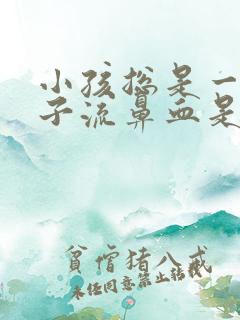 小孩总是一
子流鼻血是
贫僧猪八戒
未经同意禁止转载